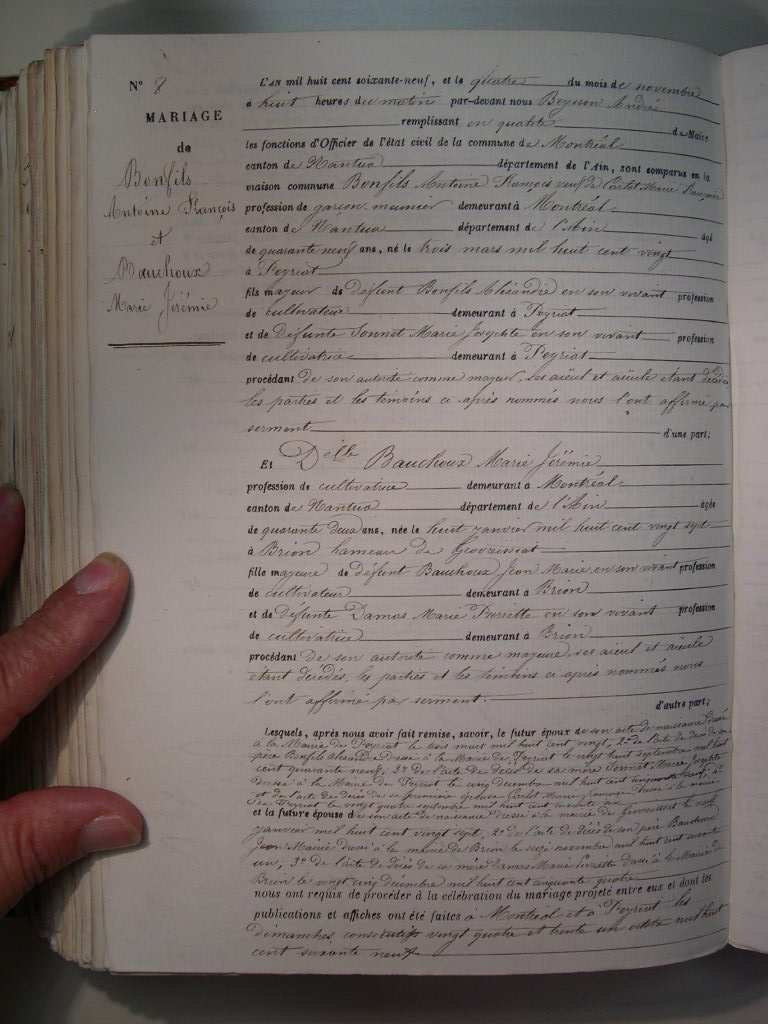 N° 8
MARIAGE
de
Bonfils
Antoine François
et
Bauchoux
Marie Jérémie
L'AN mil huit cent soixante-neuf, et le quatre du mois de novembre
à huit heures du matin par-devant nous Beyson André
remplissant en qualité de Maire
les fonctions d'Officier de l'état civil de la commune de Montréal
canton de Nantua département de l'Ain, sont comparus en la
maison commune Bonfils Antoine François veuf de Marie
profession de garçon meunier demeurant à Montréal
canton de Nantua département de l'Ain âgé
de quarante neuf ans, né le trois mars mil huit cent vingt
à Peyriat
fils majeur de défunt Bonfils Alexandre en son vivant profession
de cultivateur demeurant à Peyriat
et de défunte Sonnet Marie Josephte en son vivant profession
de cultivatrice demeurant à Peyriat
procédant de son autorité comme majeur, ses aïeul et aïeule étant décédés
les parties et les témoins ci après nommés nous l'ont affirmé par
serment d'une part;
Et Delle Bauchoux Marie Jérémie
profession de cultivatrice demeurant à Montréal
canton de Nantua département de l'Ain âgée
de quarante deux ans, née le huit janvier mil huit cent vingt sept
à Brion hameau de Geovreissiat
fille majeure de défunt Bauchoux Jean Marie en son vivant profession
de cultivateur demeurant à Brion
et de défunte Damas Marie Pierrette en son vivant profession
de cultivatrice demeurant à Brion
procédant de son autorité comme majeure, ses aïeul et aïeule
étant décédés, les parties et les témoins ci après nommés nous
l'ont affirmé par serment. d'autre part;
Lesquels, après nous avoir fait remise, savoir, le futur époux de son acte de naissance dressé
à la Mairie de Peyriat le trois mars mil huit cent vingt, 2° de l'acte de décès de son
père Bonfils Alexandre dressé à la Mairie de Peyriat le vingt huit septembre mil huit
cent quarante neuf, 3° de l'acte de décès de sa mère Sonnet Marie Josephte
dressé à la Mairie de Peyriat le cinq décembre mil huit cent cinquante
et de l'acte de décès de sa première épouse Marie dressé à la mairie
de Peyriat le vingt quatre septembre mil huit cent soixante
et la future épouse de son acte de naissance dressé à la mairie de Geovreissiat le neuf
janvier mil huit cent vingt sept, 2° de l'acte de décès de son père Bauchoux
Jean Marie dressé à la mairie de Brion le seize novembre mil huit cent soixante
un, 3° de l'acte de décès de sa mère Damas Marie Pierrette dressé à la Mairie de
Brion le vingt cinq décembre mil huit cent cinquante quatre
nous ont requis de procéder à la célébration du mariage projeté entre eux et dont les
publications et affiches ont été faites à Montréal et à Peyriat les
dimanches consécutifs vingt quatre et trente un octobre mil huit
cent soixante neuf